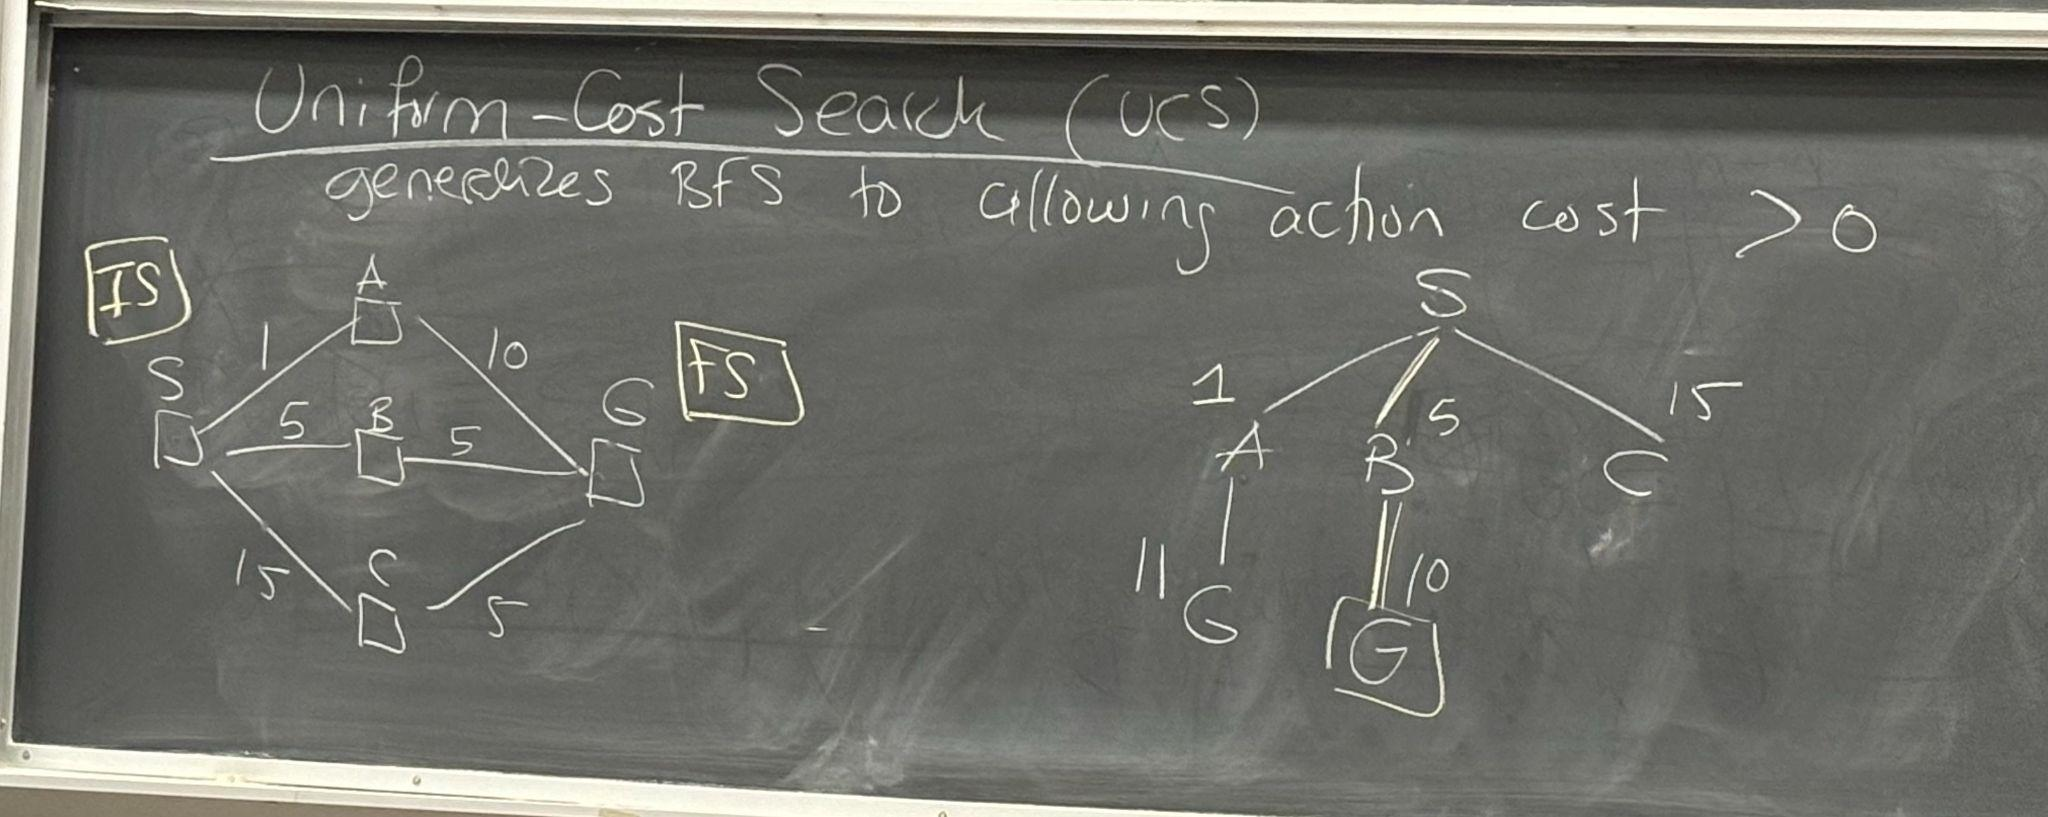 Uniform-Cost Search (UCS)
generalizes BFS to allowing action cost > 0
IS
A
S
1
10
FS
G
S
5
B
5
15
C
5
S
1
5
15
A
B
C
11
10
G
G